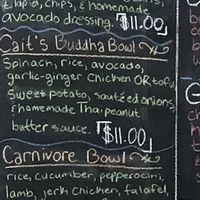 chips, & homemade
avocado dressing. $11.00
Cait's Buddha Bowl
Spinach, rice, avocado,
garlic-ginger chicken OR tofu,
Sweet potato, sautéed onions,
& homemade Thai peanut
butter sauce. $11.00
Carnivore Bowl
rice, cucumber, pepperocini,
lamb, jerk chicken, falafel,